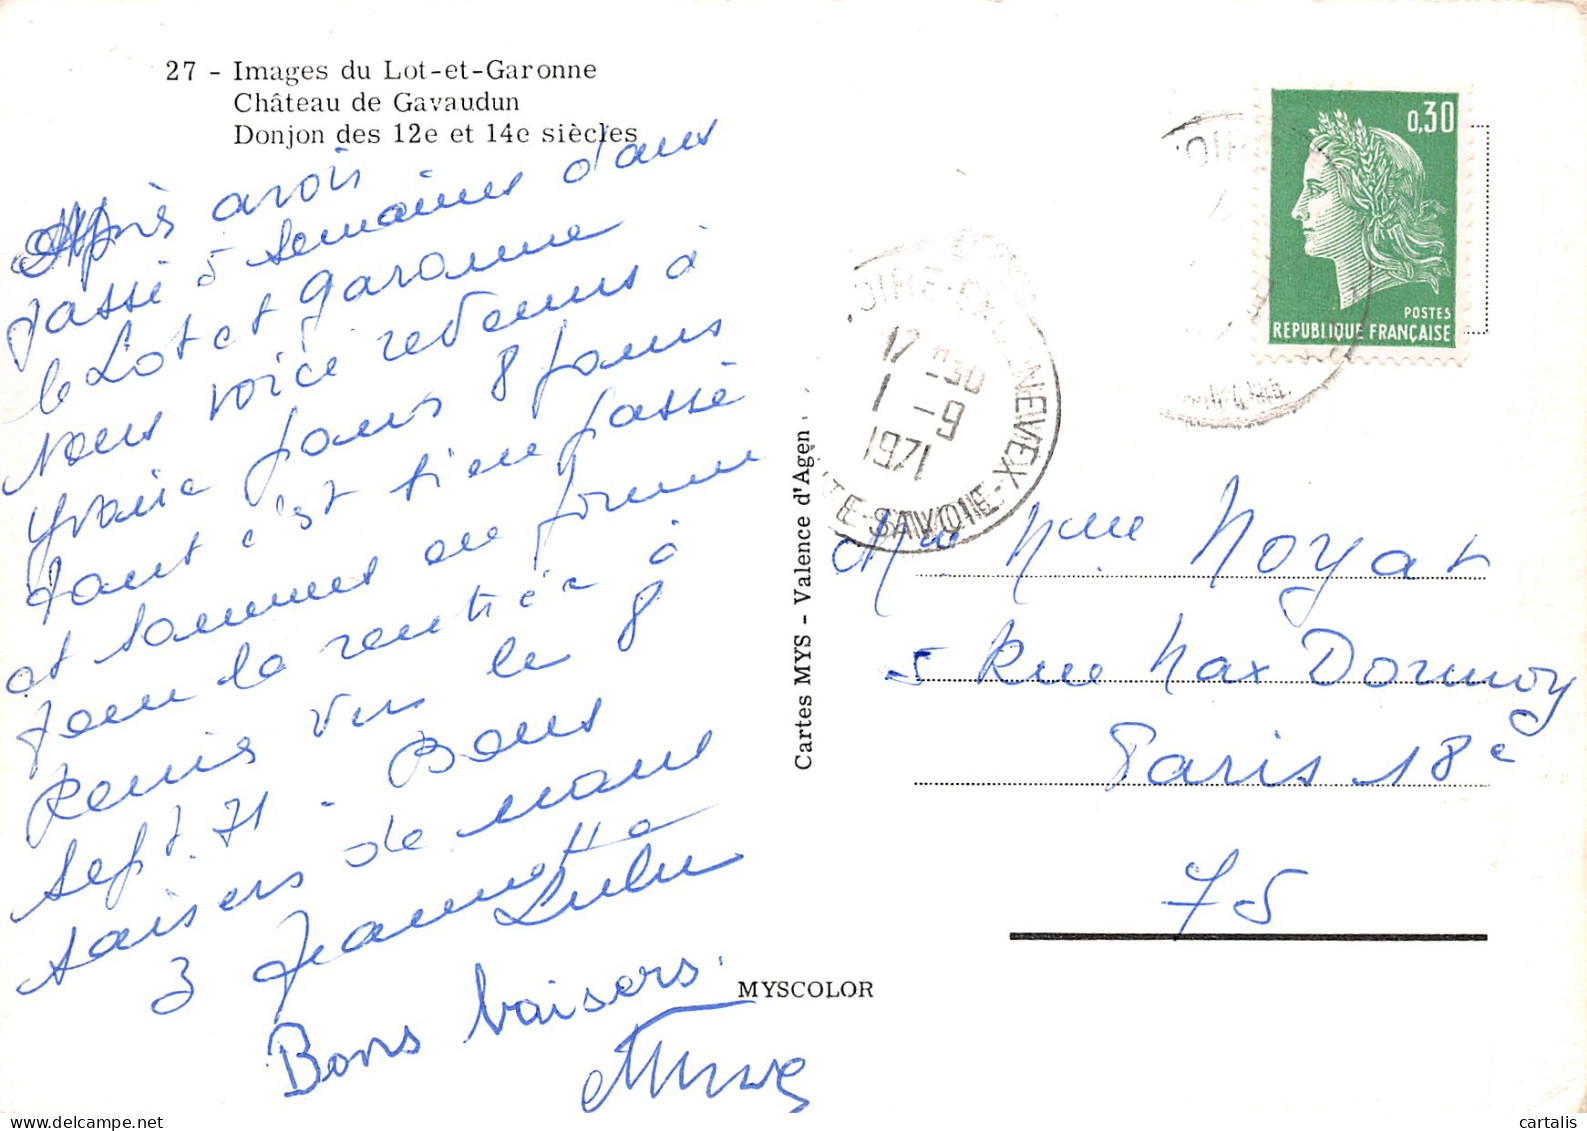 27 - Images du Lot-et-Garonne
Château de Gavaudun
Donjon des 12e et 14e siècles
Après avoir
passé 5 semaines dans
le Lot et Garonne
Nous voici revenus à
pour 8 jours
tout c'est bien passé
et sommes en forme
pour la rentrée à
vers le 8
Sept. 71 - Bons
baisers de nous
3 Jeannette
Lulu
Bons baisers.
0,30
POSTES
REPUBLIQUE FRANÇAISE
17 H30
1 - 9
1971
TE-SAVOIE
Cartes MYS - Valence d'Agen
Mr Mme Noyat
5 Rue Max Dormoy
Paris 18e
75
MYSCOLOR
cartalis